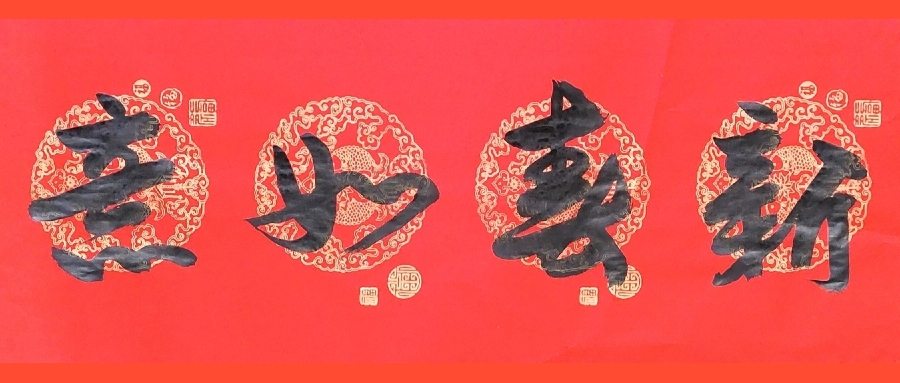 新春如意